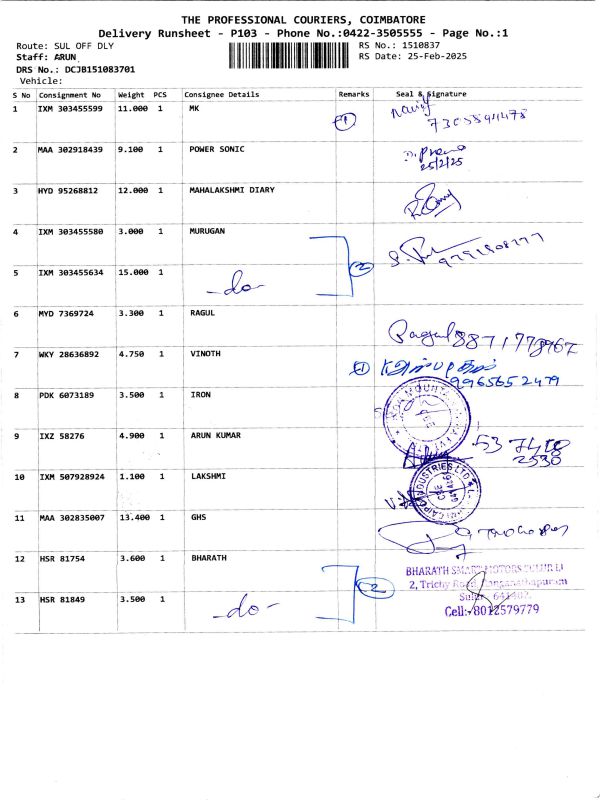 THE PROFESSIONAL COURIERS, COIMBATORE
Delivery Runsheet - P103 - Phone No.:0422-3505555 - Page No.:1
Route: SUL OFF DLY
RS No.: 1510837
Staff: ARUN
RS Date: 25-Feb-2025
DRS No.: DCJB151083701
Vehicle:
S No Consignment No Weight PCS Consignee Details Remarks Seal & Signature
1 IXM 303455599 11.000 1 MK
2 MAA 302918439 9.100 1 POWER SONIC
25/2/25
3 HYD 95268812 12.000 1 MAHALAKSHMI DIARY
4 IXM 303455580 3.000 1 MURUGAN
5 IXM 303455634 15.000 1 -do- 2
6 MYD 7369724 3.300 1 RAGUL
Ragul
7 WKY 28636892 4.750 1 VINOTH
9965652479
8 PDK 6073189 3.500 1 IRON
9 IXZ 58276 4.900 1 ARUN KUMAR
10 IXM 507928924 1.100 1 LAKSHMI
11 MAA 302835007 13.400 1 GHS
12 HSR 81754 3.600 1 BHARATH
BHARATH SMART MOTORS
2, Trichy Road,
13 HSR 81849 3.500 1 -do- 2
Cell: 8012579779